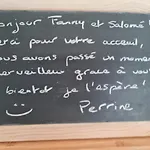 Bonjour Fanny et Salomé !
Merci pour votre acceuil,
nous avons passé un moment
merveilleux grâce à vous
bientôt je l'espère !
Perrine